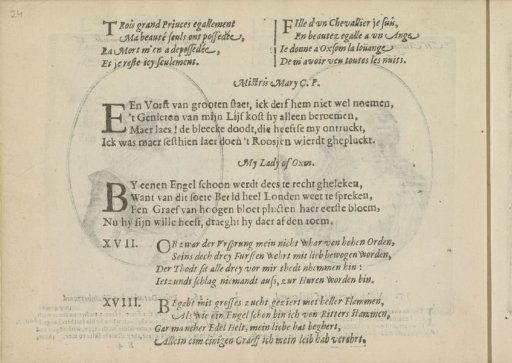 24
TRois grand Princes egallement
Ma beauté seuls ont possedée,
La Mort m'en a depossedée,
Et je reste icy seulement.
FIlle d'un Chevallier je suis,
En beautez egalle a un Ange
Ie donne a Oxfom la loüange
De m'avoir veu toutes les nuits.
Mistris Mary C. P.
EEn Vorst van grooten staet, ick derf hem niet wel noemen,
't Genieten van mijn Lijf kost hy alleen beroemen,
Maer laes! de bleecke doodt, die heeft se my ontruckt,
Ick was maer sesthien laer doen 't Roosjen wierdt gheplückt.
My Lady of Oxon.
BY eenen Engel schoon werdt dees te recht gheleken,
Want van dit soete Beeld heel Londen weet te spreken,
Een Graef van hoogen bloet pluckten haer eerste bloem,
Nu hy sijn wille heeft, draeght hy daer af den roem.
XVII. OB zwar der Ursprung mein nicht whar von hohen Orden,
Seins doch drey Fursten wehrt mit lieb bewogen worden,
Der Thodt sie alle drey vor mir thedt nhemmen hin:
Ietzundt schlag niemandt auss, zur Huren worden bin.
XVIII. BEgabt mit grosses zucht geziert mit heller Flammen,
Als wie ein Engel schon bin ich von Ritters Hammen,
Gar mancher Edel Helt, mein liebe hat beghert,
Allein eim einigen Graeff ich mein leib hab verehrt.